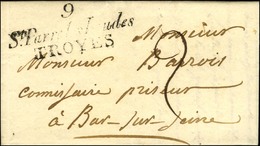 9
St Parre les Vaudes
TROYES
Monsieur
Monsieur Barrois
comissaire priseur
à Bar-sur-Seine